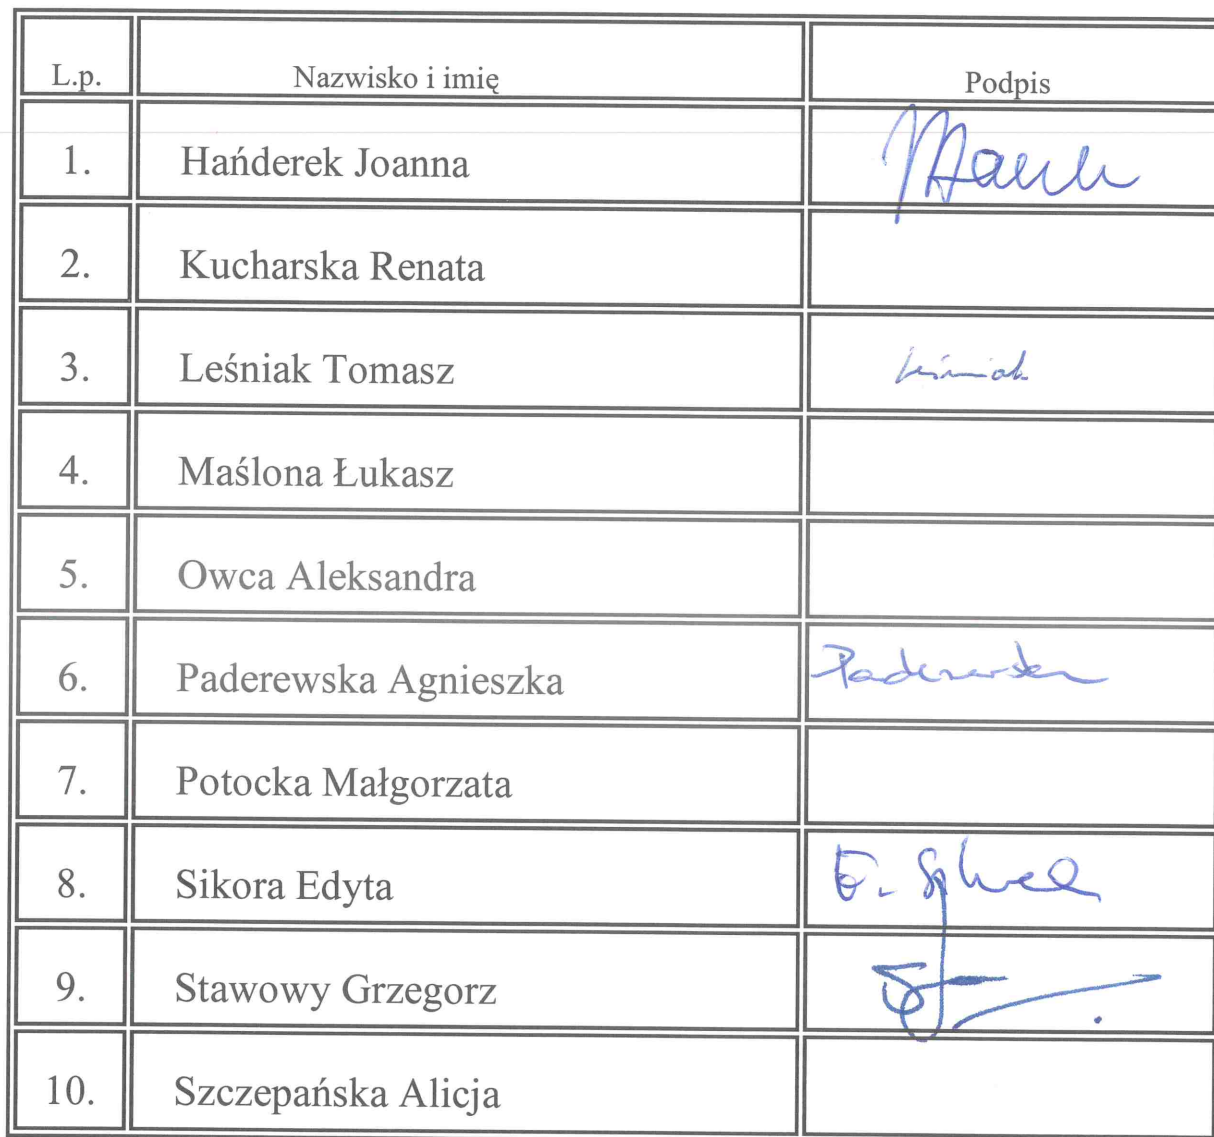 L.p. Nazwisko i imię Podpis
1. Hańderek Joanna
2. Kucharska Renata
3. Leśniak Tomasz Leśniak
4. Maślona Łukasz
5. Owca Aleksandra
6. Paderewska Agnieszka Paderewska
7. Potocka Małgorzata
8. Sikora Edyta E.
9. Stawowy Grzegorz
10. Szczepańska Alicja